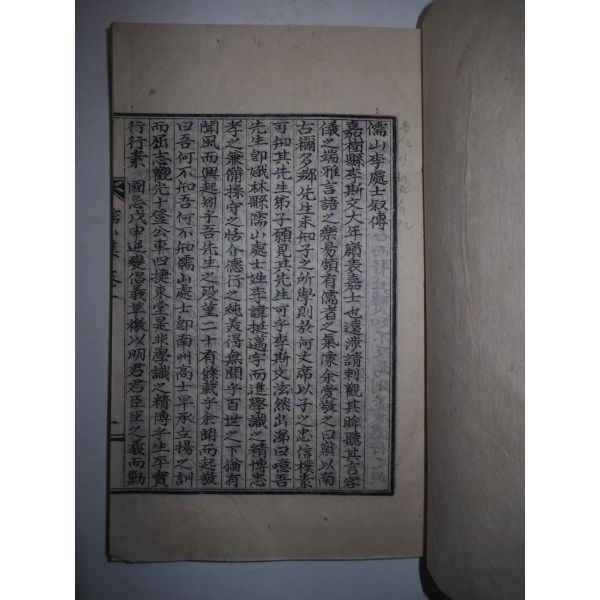 儒山李處士叙傳
嘉樹縣李斯文大年嶺表嘉士也遠涉請刺觀其眸聽其言容
儀之端雅言語之樂易頗有儒者之氣像余愛敬之曰嶺以南
古稱多鄉先生未知子之所學則於何丈席以子之忠信樸素
可知其先生弟子願見其先生可乎李斯文泫然出涕曰噫吾
先生卽娥林縣儒山處士姓李諱挺邁字而進學識之精博忠
孝之兼備操守之恬介德行之純美得無聞乎百世之下猶有
聞風而興起矧乎吾先生之歿堇二十有餘載乎余聞而起敬
曰吾何不知吾何不知儒山處士卽南州高士早承立揚之訓
而屈志觀光十登公車四捷東堂是非學識之精博乎生平實
行行素 國忌戊申逆變倡義草檄以明君君臣臣之義而勤